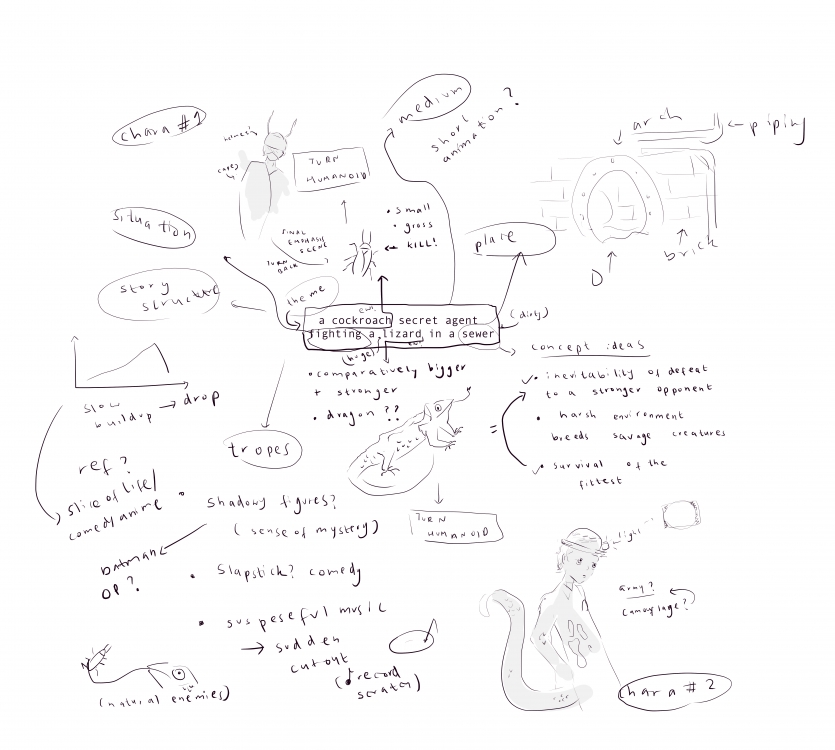 medium
short
animation?
arch
piping
chara #1
TURN
HUMANOID
situation
• small
• gross
KILL!
place
brick
FINAL
EMPHASIS
SCENE
TURN
BACK
story
structure
theme
a cockroach secret agent
fighting a lizard in a sewer
(dirty)
(huge)
• comparatively bigger
+ stronger
• dragon ??
concept ideas
• inevitability of defeat
to a stronger opponent
• harsh environment
breeds savage creatures
• survival of the
fittest
slow
buildup → drop
tropes
ref?
slice of life/
comedy anime
• Shadowy figures?
(sense of mystery)
batman
OP?
• Slapstick? comedy
• suspeseful music
→ sudden
cutout
(record
scratch)
(natural enemies)
TURN
HUMANOID
light
army?
camouflage?
chara #2